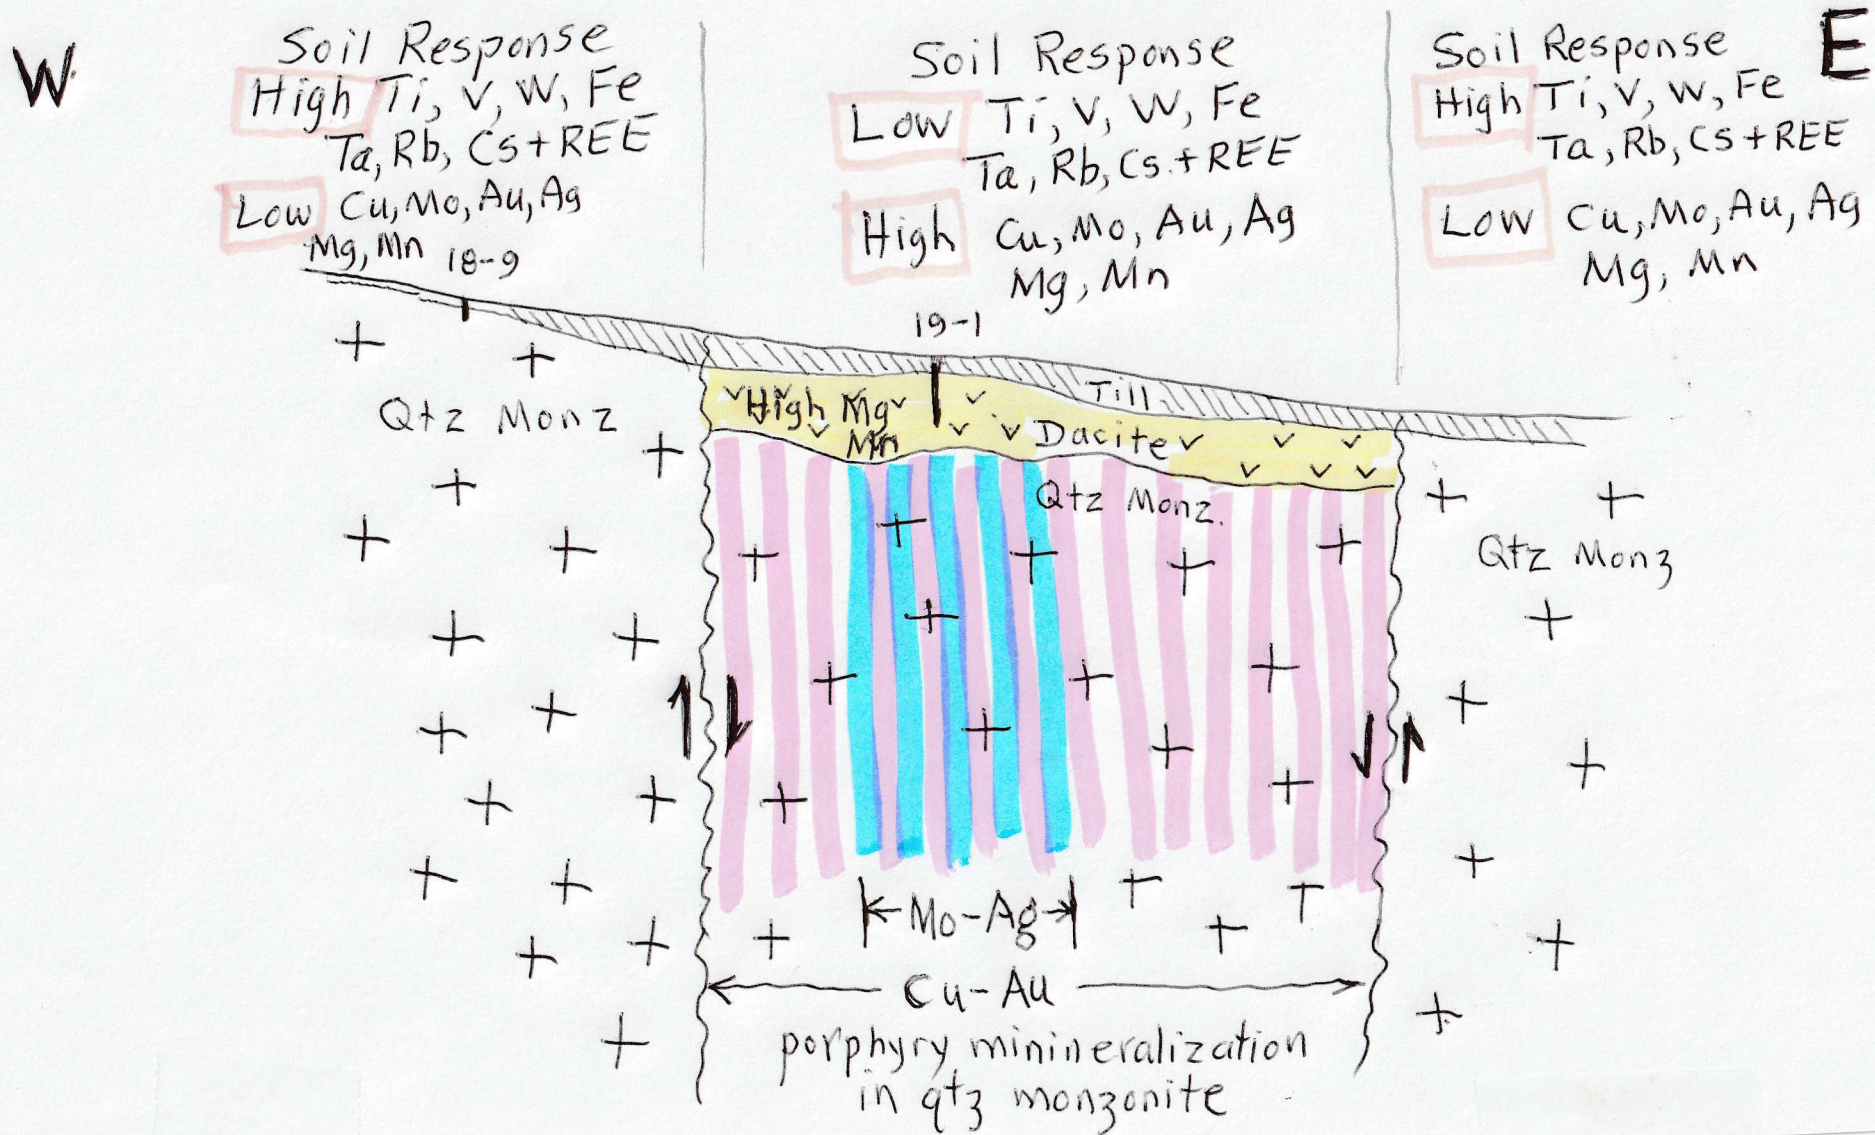 W
Soil Response
High Ti, V, W, Fe
Ta, Rb, Cs + REE
Low Cu, Mo, Au, Ag
Mg, Mn
18-9
Soil Response
Low Ti, V, W, Fe
Ta, Rb, Cs + REE
High Cu, Mo, Au, Ag
Mg, Mn
19-1
Soil Response
E
High Ti, V, W, Fe
Ta, Rb, Cs + REE
Low Cu, Mo, Au, Ag
Mg, Mn
Qtz Monz
High Mg
Mn
Till
Dacite
Qtz Monz.
Qtz Monz
Mo-Ag
Cu-Au
porphyry minineralization
in qtz monzonite